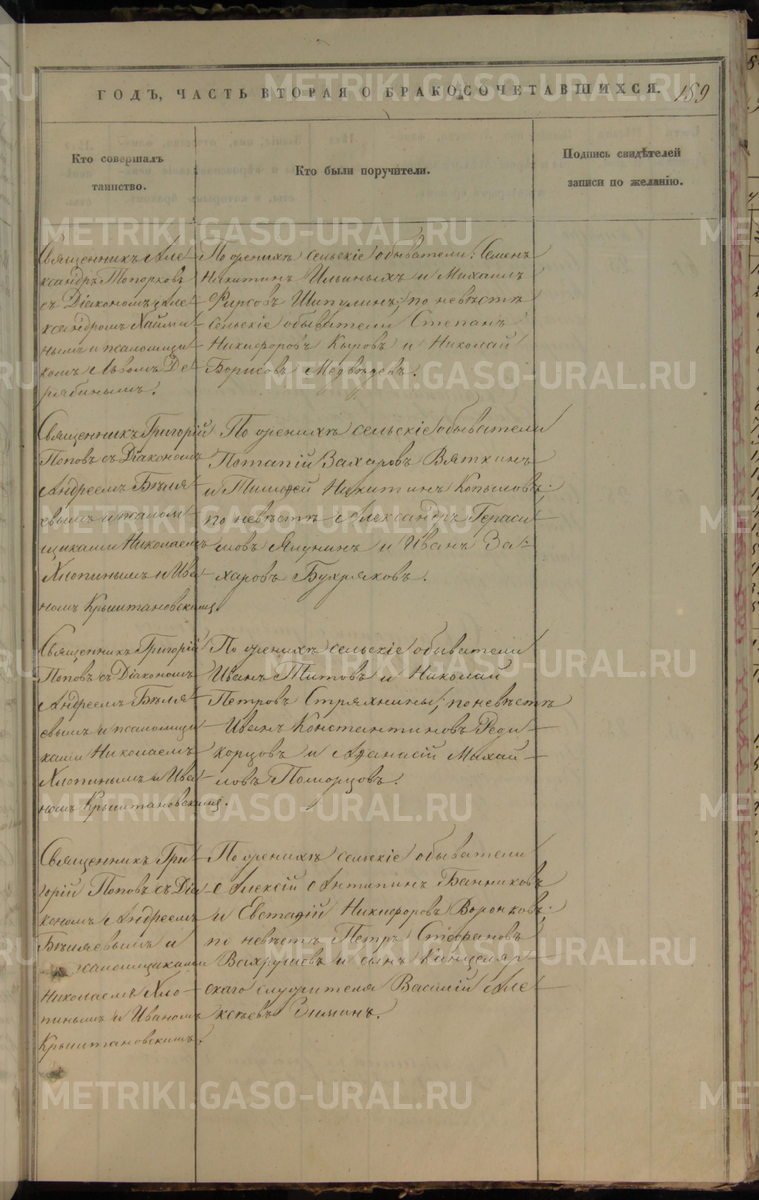 ГОДЪ, ЧАСТЬ ВТОРАЯ О БРАКОСОЧЕТАВШИХСЯ. 189
Кто совершалъ
таинство.
Кто были поручители.
Подпись свидѣтелей
записи по желанію.
Священникъ Але-
ксандръ Топорковъ
съ Діакономъ Але-
ксандромъ
нымъ и псаломщи-
комъ Львомъ Де-
рябинымъ.
По женихѣ сельскіе обыватели: Семенъ
Никитинъ Ильиныхъ и Михаилъ
Фирсовъ Шипулинъ; по невѣстѣ
сельскіе обыватели Степанъ
Никифоровъ Кыровъ и Николай
Борисовъ Медвѣдовъ.
Священникъ Григорій
Поповъ съ Діакономъ
Андреемъ Бѣля-
евымъ и псалом-
щиками Николаемъ
Хлопинымъ и Ива-
номъ Крыштановскимъ.
По женихѣ сельскіе обыватели
Потапій Захаровъ Вяткинъ
и Тимофей Никитинъ Копыловъ;
по невѣстѣ Александръ Гераси-
мовъ Ялунинъ и Иванъ За-
харовъ Бухряковъ.
Священникъ Григорій
Поповъ съ Діакономъ
Андреемъ Бѣля-
евымъ и псаломщи-
ками Николаемъ
Хлопинымъ и Ива-
номъ Крыштановскимъ.
По женихѣ сельскіе обыватели
Иванъ Титовъ и Николай
Петровъ Стряхнины; по невѣстѣ
Иванъ Константиновъ Реди-
корцовъ и Афанасій Михай-
ловъ Поморцовъ.
Священникъ Гри-
горій Поповъ съ Діа-
кономъ Андреемъ
Бѣляевымъ и
псаломщиками
Николаемъ Хло-
пинымъ и Иваномъ
Крыштановскимъ.
По женихѣ сельскіе обыватели
Алексій Антипинъ Банниковъ
и Евстафій Никифоровъ Воронковъ;
по невѣстѣ Петръ Стефановъ
Вахрушевъ и сынъ Канцеляр-
скаго служителя Василій Але-
ксѣевъ Зиминъ.
METRIKI.GASO-URAL.RU